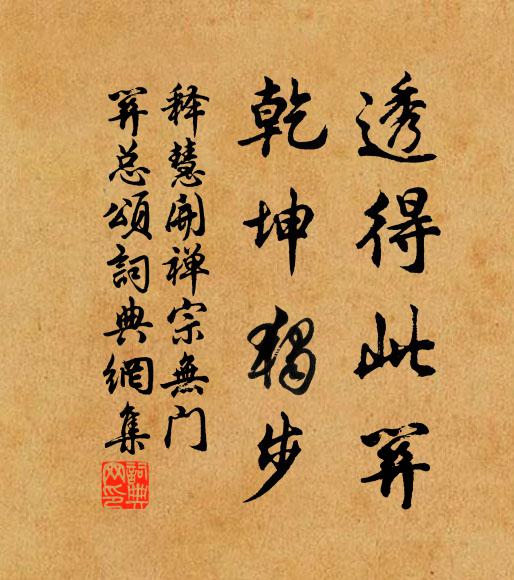 透得此关
乾坤独步
释慧开禅宗无门
关总颂词典网集
词典网印